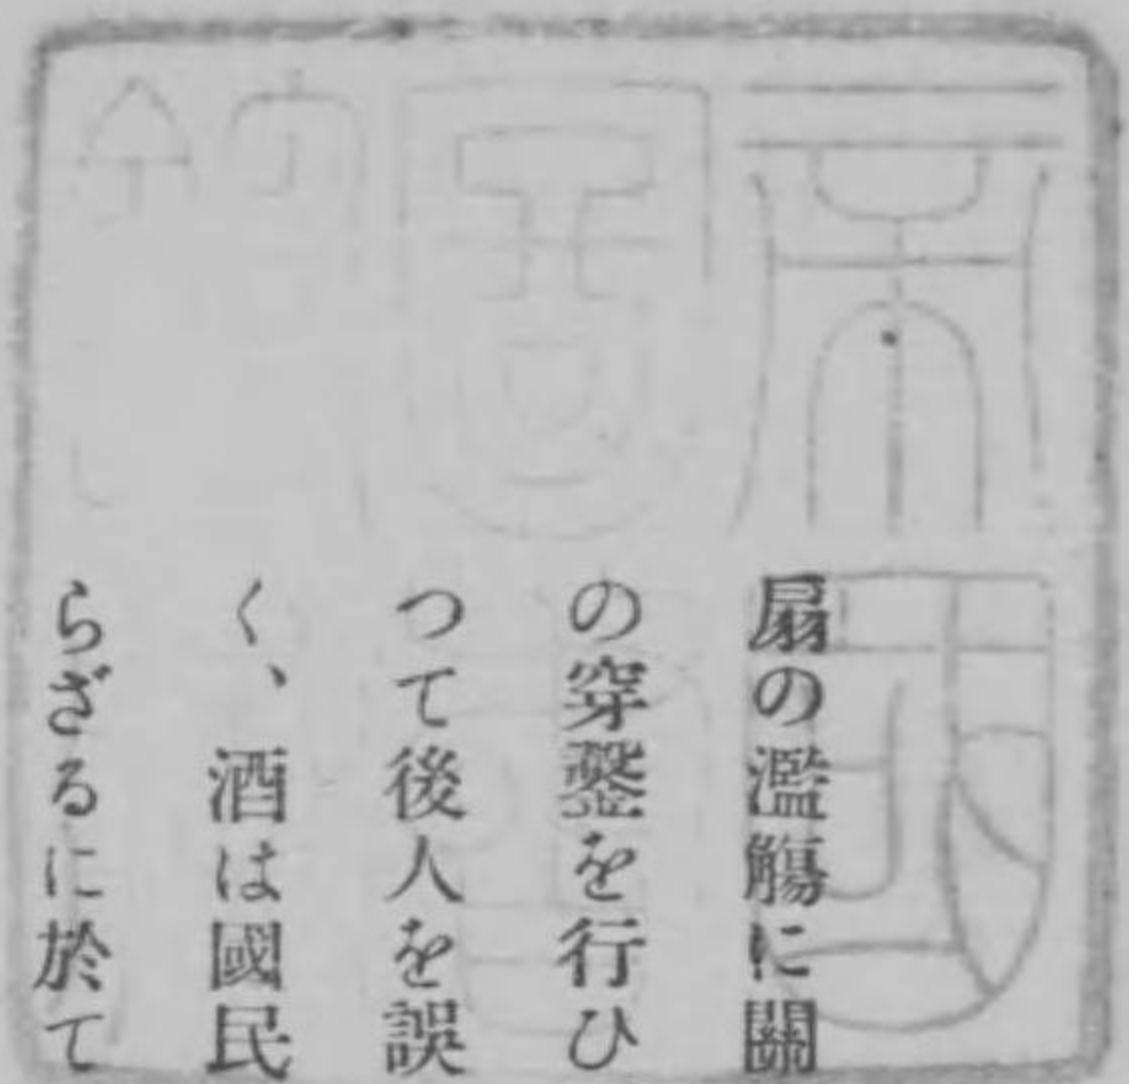 扇の濫觴に關
の穿鑿を行ひ
つて後人を誤
く、酒は國民
らざるに於て